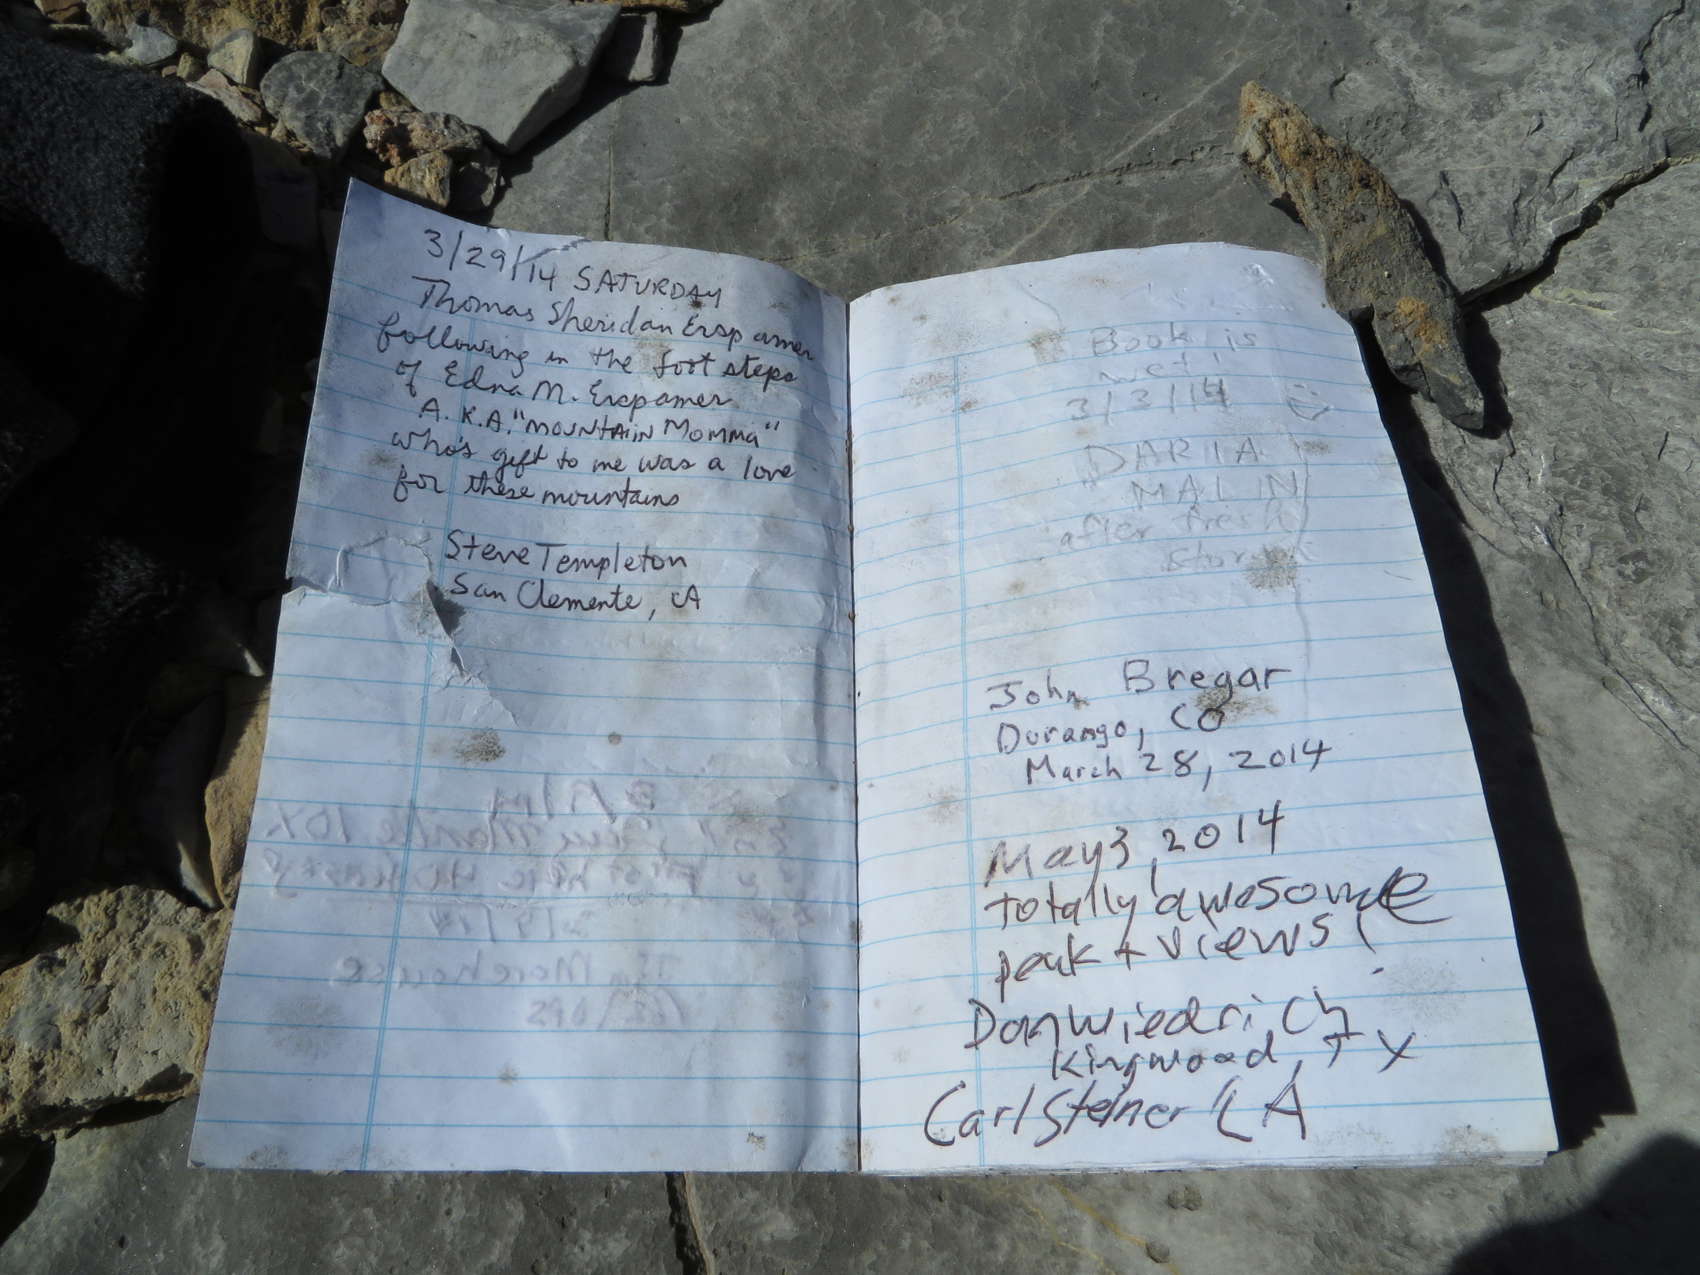 3/29/14 SATURDAY
Thomas Sheridan Erspamer
following in the foot steps
of Edna M. Erspamer
A.K.A. "MOUNTAIN MOMMA"
who's gift to me was a love
for these mountains
Steve Templeton
San Clemente, CA
Book is
wet!
3/3/14
DARIA
MALIN
after fresh
storm
John Bregar
Durango, CO
March 28, 2014
May 3, 2014
totally awesome
peak + views!
Dan Wiedrich
Kingwood, TX
Carl Steiner LA